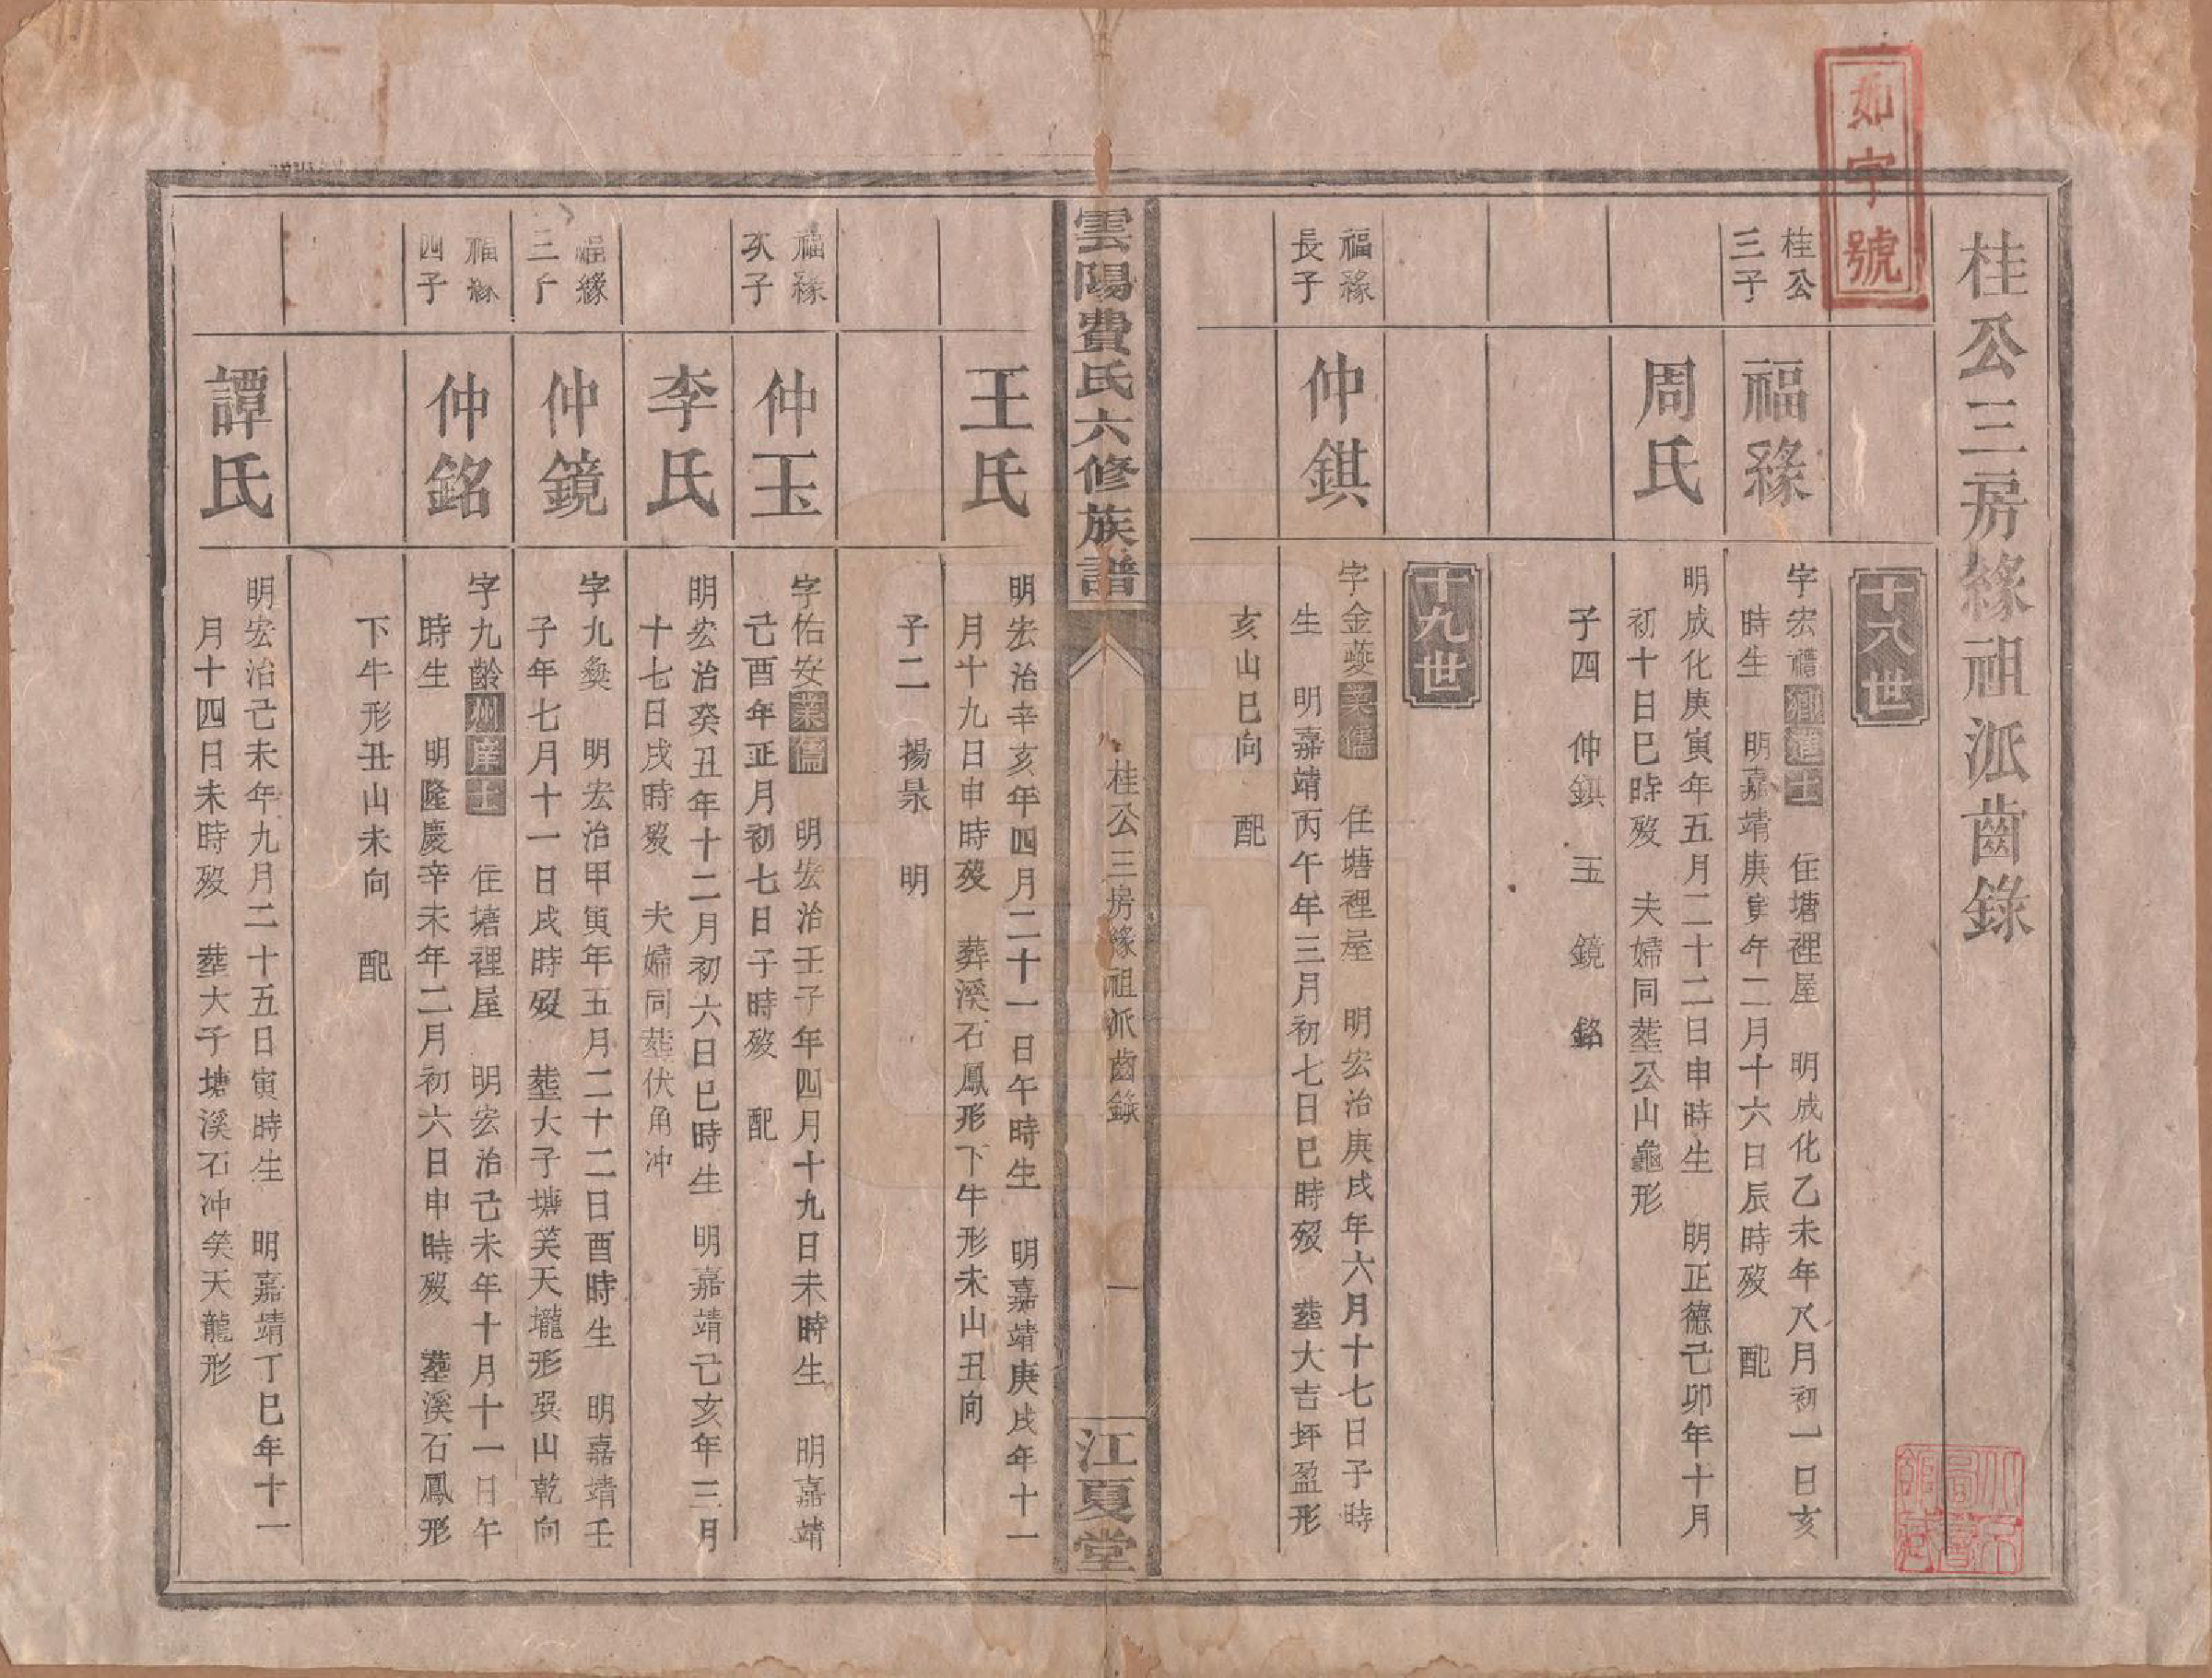 如字號
桂公三房緣祖派齒錄
十八世
桂公
三子
福緣
字宏禮鄉進士　住塘裡屋　明成化乙未年八月初一日亥
時生　明嘉靖庚寅年二月十六日辰時歿　配
周氏
明成化庚寅年五月二十二日申時生　明正德己卯年十月
初十日巳時歿　夫婦同塟公山龜形
子四　仲鉷　玉　鏡　銘
十九世
福緣
長子
仲鉷
字金菱業儒　住塘裡屋　明宏治庚戌年六月十七日子時
生　明嘉靖丙午年三月初七日巳時歿　塟大吉坪盈形
亥山巳向　配
雲陽費氏六修族譜
桂公三房緣祖派齒錄
一
江夏堂
王氏
明宏治辛亥年四月二十一日午時生　明嘉靖庚戌年十一
月十九日申時歿　葬溪石鳳形下牛形未山丑向
子二　揚杲　明
福緣
次子
仲玉
字佑安業儒　明宏治壬子年四月十九日未時生　明嘉靖
己酉年正月初七日子時歿　配
李氏
明宏治癸丑年十二月初六日巳時生　明嘉靖己亥年三月
十七日戌時歿　夫婦同塟伏角冲
福緣
三子
仲鏡
字九䶮　明宏治甲寅年五月二十二日酉時生　明嘉靖壬
子年七月十一日戌時歿　塟大子塘笑天壠形巽山乾向
福緣
四子
仲銘
字九齡州庠士　住塘裡屋　明宏治己未年十月十一日午
時生　明隆慶辛未年二月初六日申時歿　塟溪石鳳形
下牛形丑山未向　配
譚氏
明宏治己未年九月二十五日寅時生　明嘉靖丁巳年十一
月十四日未時歿　塟大子塘溪石冲笑天龍形